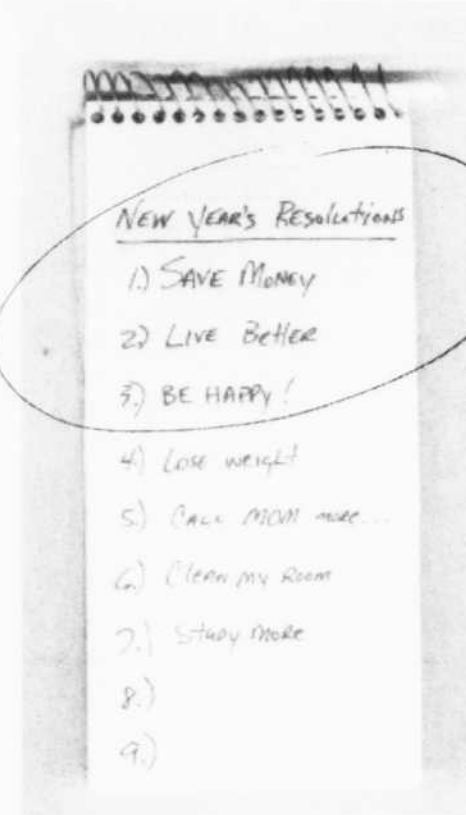 New Year's Resolutions
1.) Save Money
2) Live Better
3.) Be Happy!
4.) Lose weight
5.) Call MOM more...
6.) Clean my Room
7.) Study More
8.)
9.)